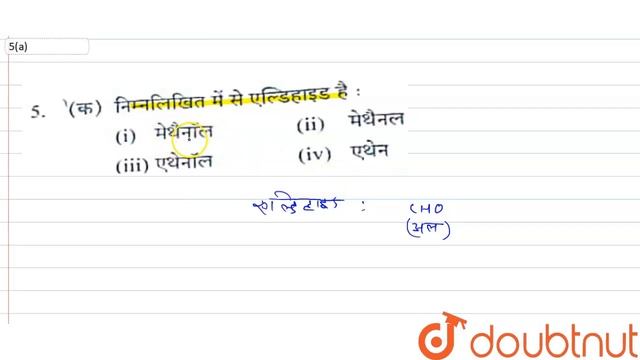 5(a)
5. (क) निम्नलिखित में से एल्डिहाइड है :
(i) मेथैनॉल (ii) मेथैनल
(iii) एथेनॉल (iv) एथेन
एल्डिहाइड : CHO
(अल)
doubtnut